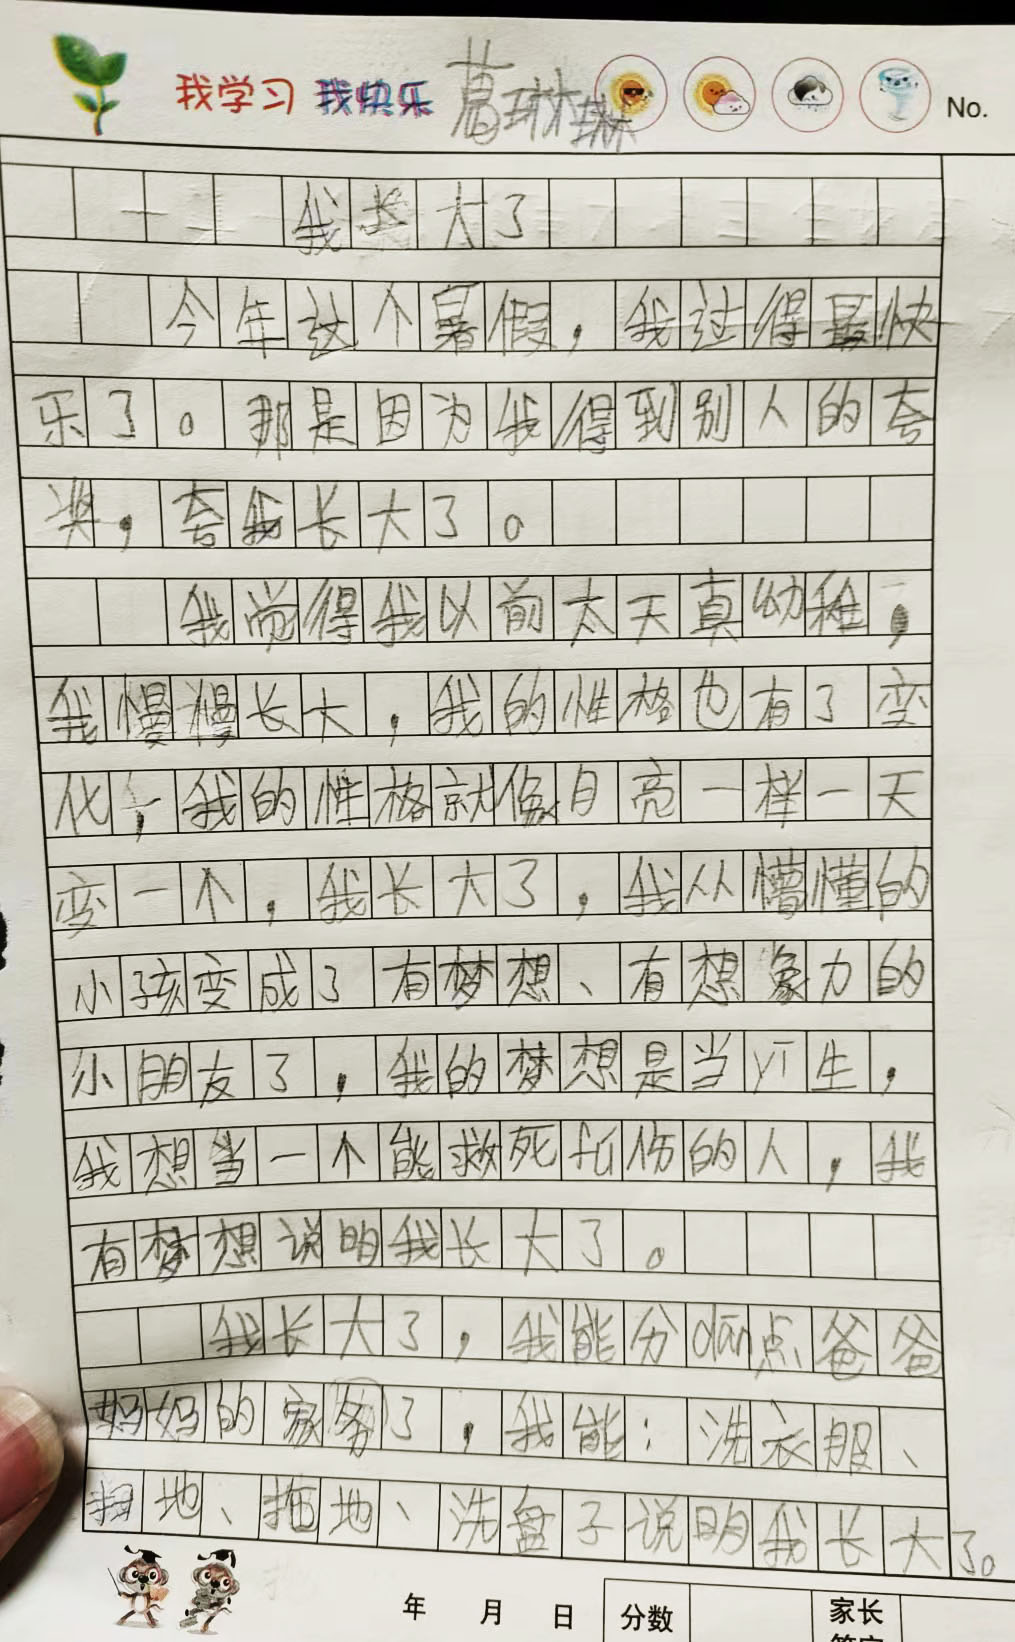 我学习 我快乐 葛琳琳 No.
我长大了
今年这个暑假，我过得最快
乐了。那是因为我得到别人的夸
奖，夸我长大了。
我觉得我以前太天真幼稚，
我慢慢长大，我的性格也有了变
化，我的性格就像月亮一样一天
变一个，我长大了，我从懵懂的
小孩变成了有梦想、有想象力的
小朋友了，我的梦想是当yī生，
我想当一个能救死fú伤的人，我
有梦想说明我长大了。
我长大了，我能分dān点爸爸
妈妈的家务了，我能：洗衣服、
扫地、拖地、洗盘子说明我长大了。
年 月 日 分数 家长